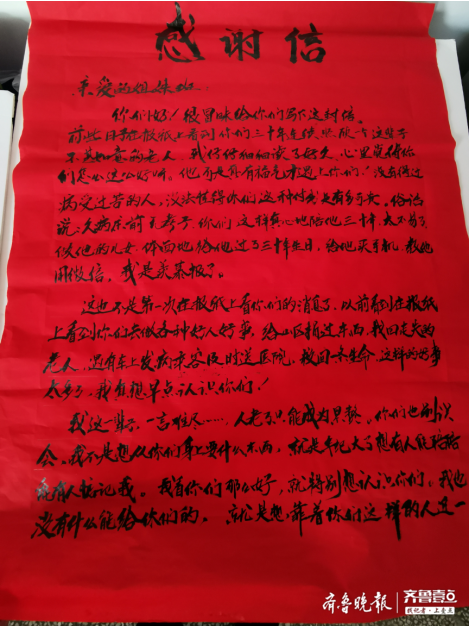 感谢信
亲爱的姐妹们：
你们好！很冒昧给你们写下这封信。
前些日子在报纸上看到你们三十年连续照顾一个这辈子
不尽如意的老人，我仔仔细细读了好久，心里真得你
们是怎么这么好啊。他不是具有福气来遇上你们！没有经过
病受过苦的人，没法懂得你们这种付出是有多可贵。俗话
说：久病床前无孝子，你们这样真心地陪他三十年，太不易了
做他的儿女，体面地给他过了三十年生日，给他买手机，教他
用微信，我是羡慕极了。
这也不是第一次在报纸上看你们的消息了，以前看到在报纸
上看到你们去做各种好人好事，给山区捐过东西，救回走失的
老人，还有车上发病乘客及时送医院，救回一条生命，这样的好事
太多了，我真想早点认识你们！
我这一辈子，一言难尽……，人老了只能成为累赘。你们也别误
会，我不是想从你们身上要什么东西，就是年纪大了想有人能陪陪
能有人惦记我。我看你们那么好，就特别想认识你们。我也
没有什么能给你们的，就是想靠着你们这样的人近一
齐鲁晚报 齐鲁壹点
找记者·上壹点